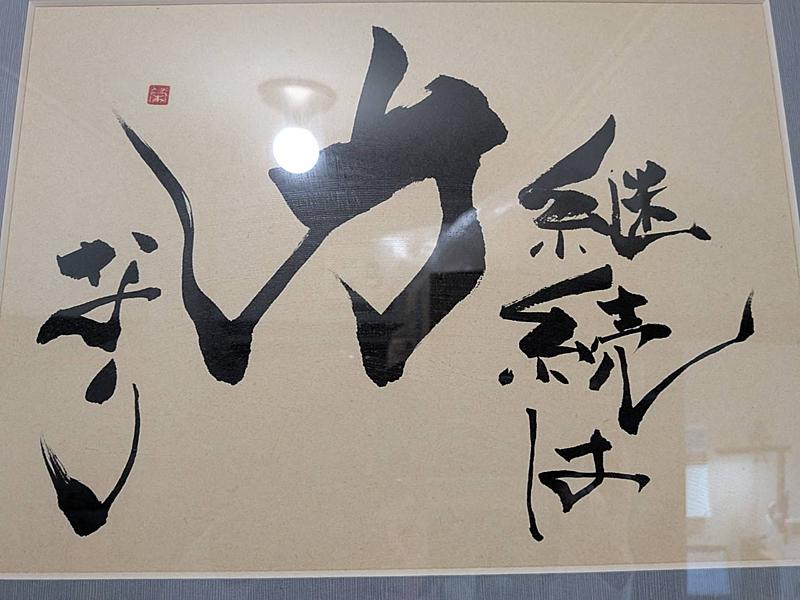 継続は
力
なり